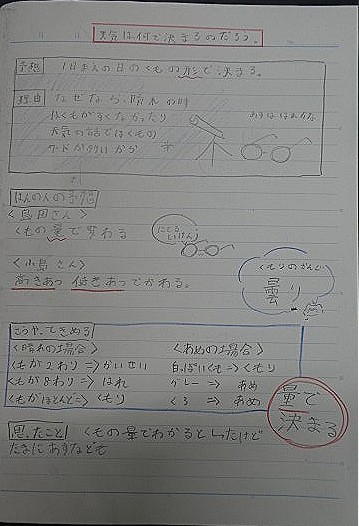 天気は何で決まるのだろう。
予想 1日まえの日のくもの形で決まる。
理由 なぜなら、晴れの時
はくもがすくなかったり
天気の話ではくもの
ワードが多いから
あすははれかな
ほんの人の予想
〈島田さん〉
くもの量で変わる
にてる
〈小島さん〉
高きあつ 低きあつでかわる。
くもりのかんじ
曇り
こうやってきめる
〈晴れの場合〉
くもが2わり⇒かいせい
くもが8わり⇒はれ
くもがほとんど⇒くもり
〈あめの場合〉
白っぽいくも⇒くもり
グレー⇒あめ
くろ⇒あめ
量で
決まる
思ったこと くもの量でわかるとしったけど
たまにあすなども